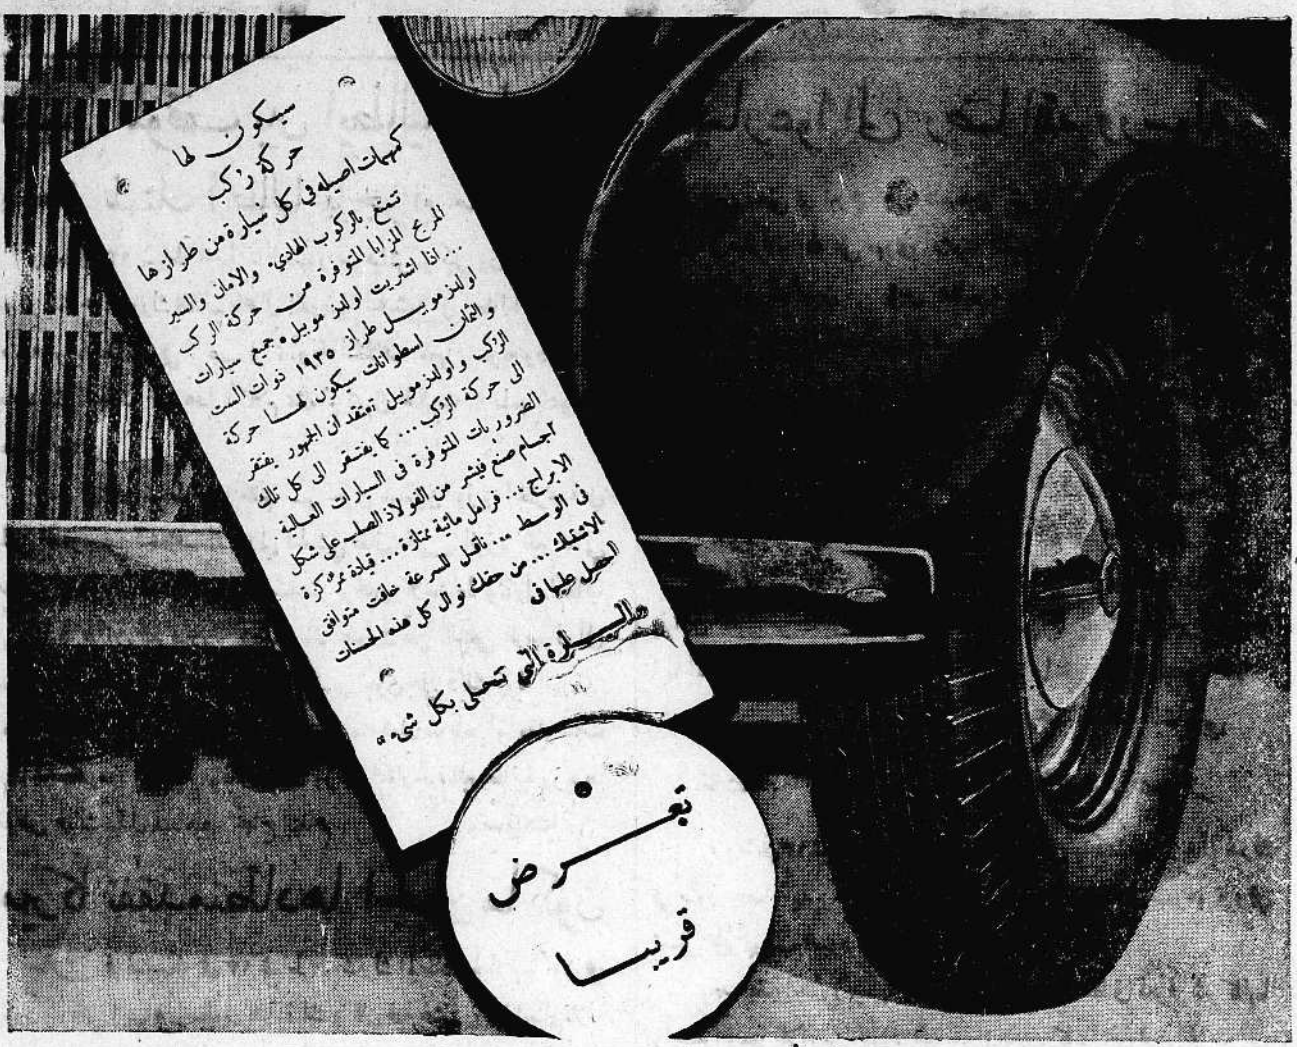 سيكون لها
حركة ركب
كمهمات اصيله في كل سيارة من طرازها
تمتع بالركوب الهادىء والامان والسير
المريح المزايا المتوفرة من حركة الركب
... اذا اشتريت اولدزموبيل، جميع سيارات
اولدزموبيل طراز ١٩٣٥ ذوات الست
والثمان اسطوانات سيكون لها حركة
الركب واولدزموبيل تعتقد ان الجمهور يفتقر
الى حركة الركب... كما يفتقر الى كل تلك
الضروريات المتوفرة في السيارات العالية.
اجسام صنع فيشر من الفولاذ الصلب على شكل
الابراج ... فرامل مائية ممتازة... قيادة مركزة
في الوسط ... ناقل للسرعة خافت متوافق
الاشتباك... من حقك نوال كل هذه الحسنات
احصل عليها في
السيارة التي تتحلى بكل شىء"
تعرض
قريبا